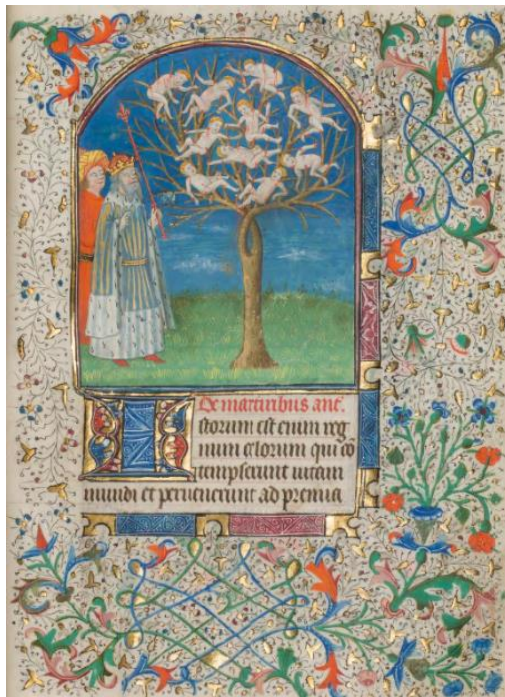 De martiribus ane.
Istorum est enim reg
num celorum qui cō
tempserunt uitam
mundi et peruenerunt ad premia